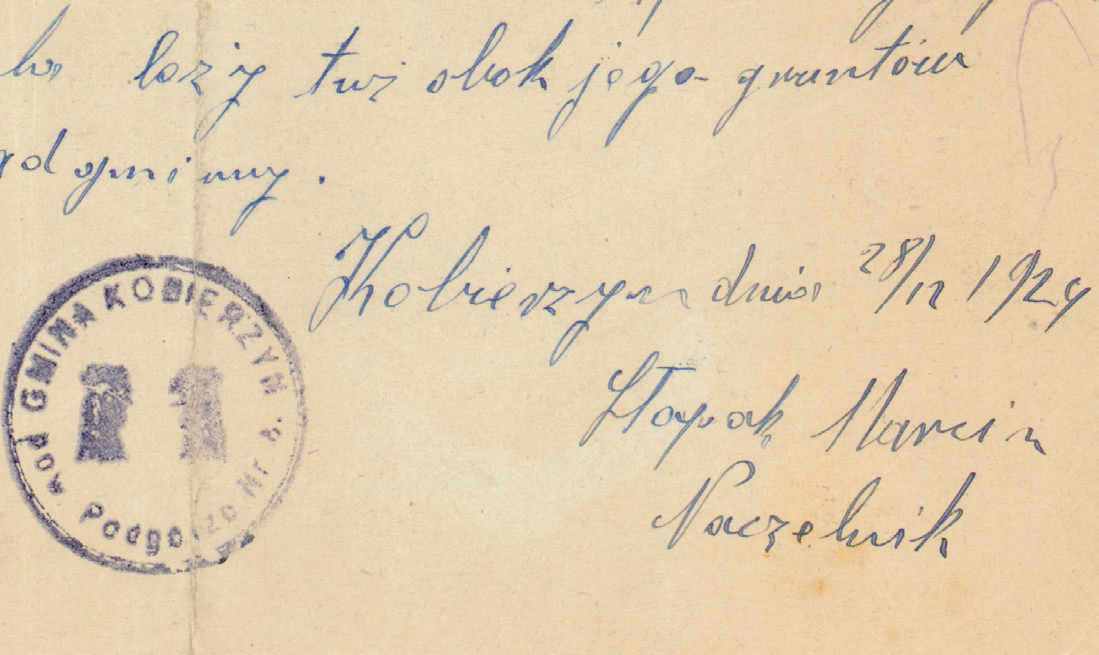 leży tuż obok jego gruntów
gminy.
Kobierzyn dnia 28/11 1924
Słapak Marcin
Naczelnik
GMINA KOBIERZYN
pow. Podgórze Nr